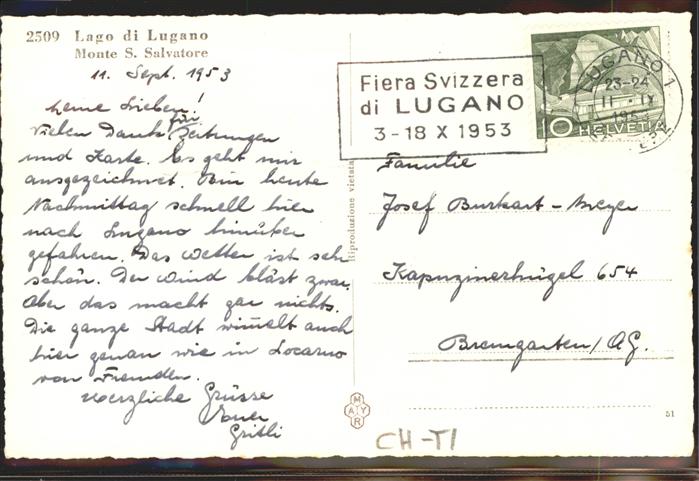 2509 Lago di Lugano
Monte S. Salvatore
11. Sept. 1953
Meine Lieben!
Vielen Dank für Zeitungen
und Karte. Es geht mir
ausgezeichnet. Bin heute
Nachmittag schnell hier
nach Lugano hinüber
gefahren. Das Wetter ist sehr
schön. Der Wind bläst zwar,
Aber das macht gar nichts.
Die ganze Stadt wimmelt auch
hier genau wie in Locarno
von Fremden.
Herzliche Grüsse
Euer
Gritli
Riproduzione vietata
Fiera Svizzera
di LUGANO
3-18 X 1953
LUGANO 1
23-24
11 IX
1953
10 HELVETIA
Familie
Josef Burkart-Meyer
Kapuzinerhügel 654
Bremgarten/AG.
MAYR
51
CH-TI